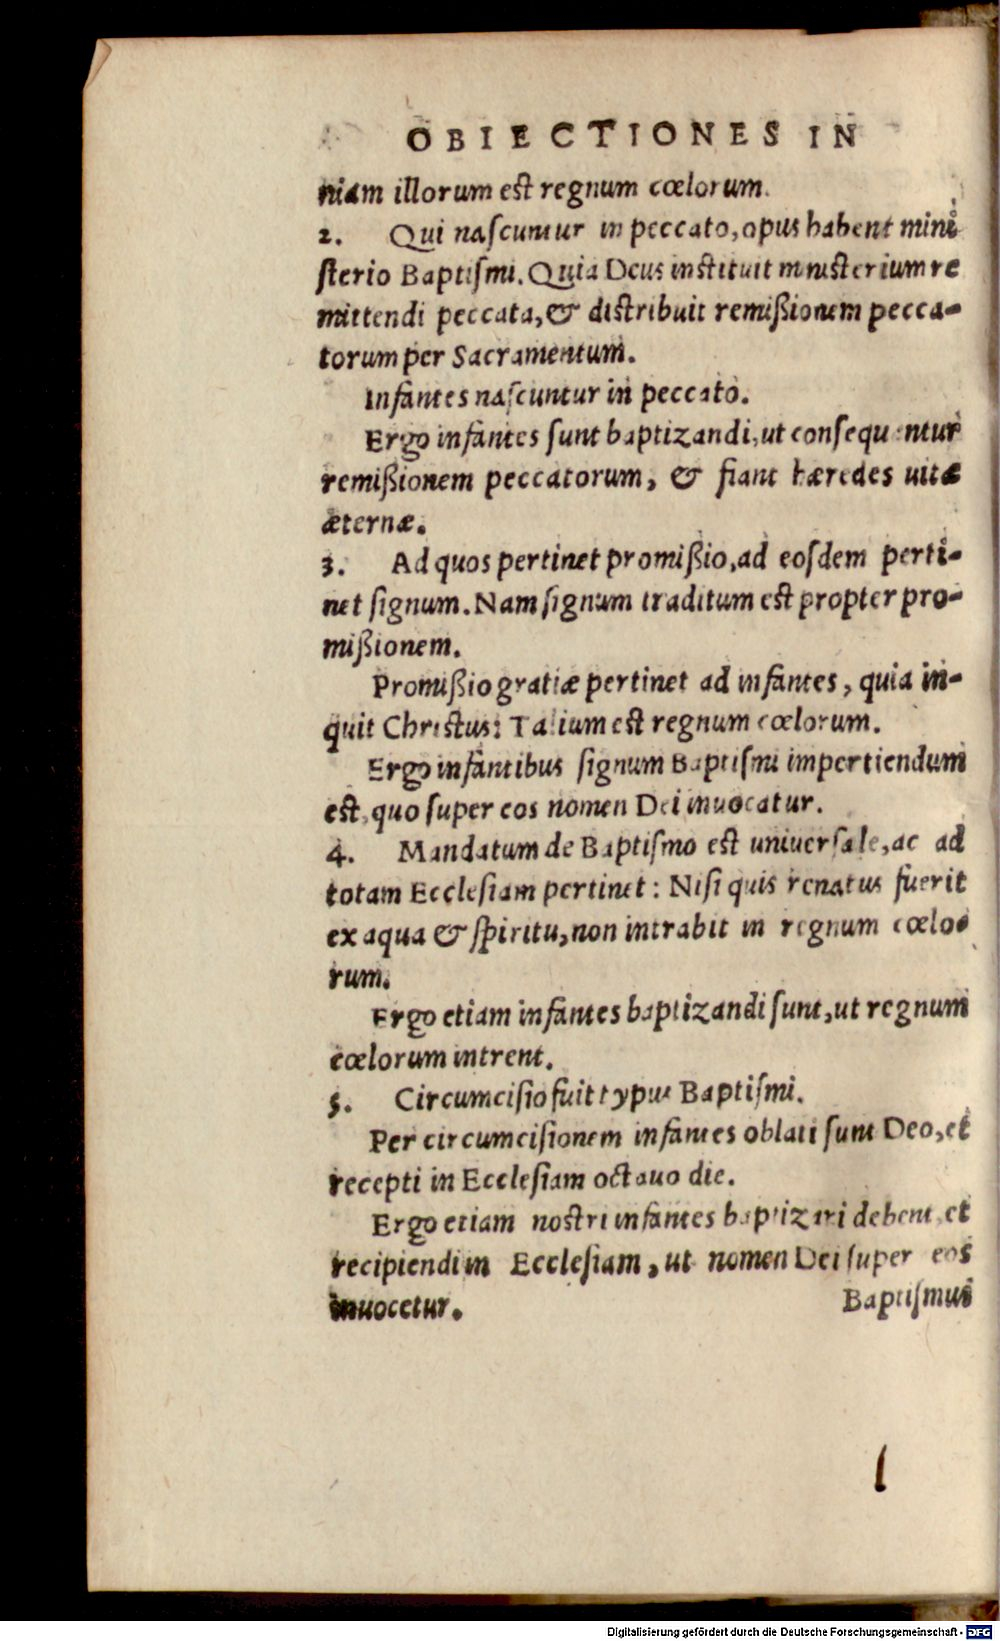 OBIECTIONES IN
niam illorum est regnum cœlorum.
2. Qui naſcuntur in peccato, opus habent mini
ſterio Baptiſmi. Quia Deus instituit ministerium re
mittendi peccata, & distribuit remiſsionem pecca-
torum per Sacramentum.
Infantes naſcuntur in peccato.
Ergo infantes ſunt baptizandi, ut conſequantur
remiſsionem peccatorum, & fiant hæredes uitæ
æternæ.
3. Ad quos pertinet promiſsio, ad eoſdem perti-
net ſignum. Nam ſignum traditum est propter pro-
miſsionem.
Promiſsio gratiæ pertinet ad infantes, quia in-
quit Christus: Talium est regnum cœlorum.
Ergo infantibus ſignum Baptiſmi impertiendum
est, quo ſuper eos nomen Dei inuocatur.
4. Mandatum de Baptiſmo est uniuerſale, ac ad
totam Eccleſiam pertinet: Niſi quis renatus fuerit
ex aqua & ſpiritu, non intrabit in regnum cœlo-
rum.
Ergo etiam infantes baptizandi ſunt, ut regnum
cœlorum intrent.
5. Circumciſio fuit typus Baptiſmi.
Per circumciſionem infantes oblati ſunt Deo, et
recepti in Eccleſiam octauo die.
Ergo etiam nostri infantes baptizari debent, et
recipiendi in Eccleſiam, ut nomen Dei ſuper eos
inuocetur.
Baptiſmus
Digitalisierung gefördert durch die Deutsche Forschungsgemeinschaft - DFG